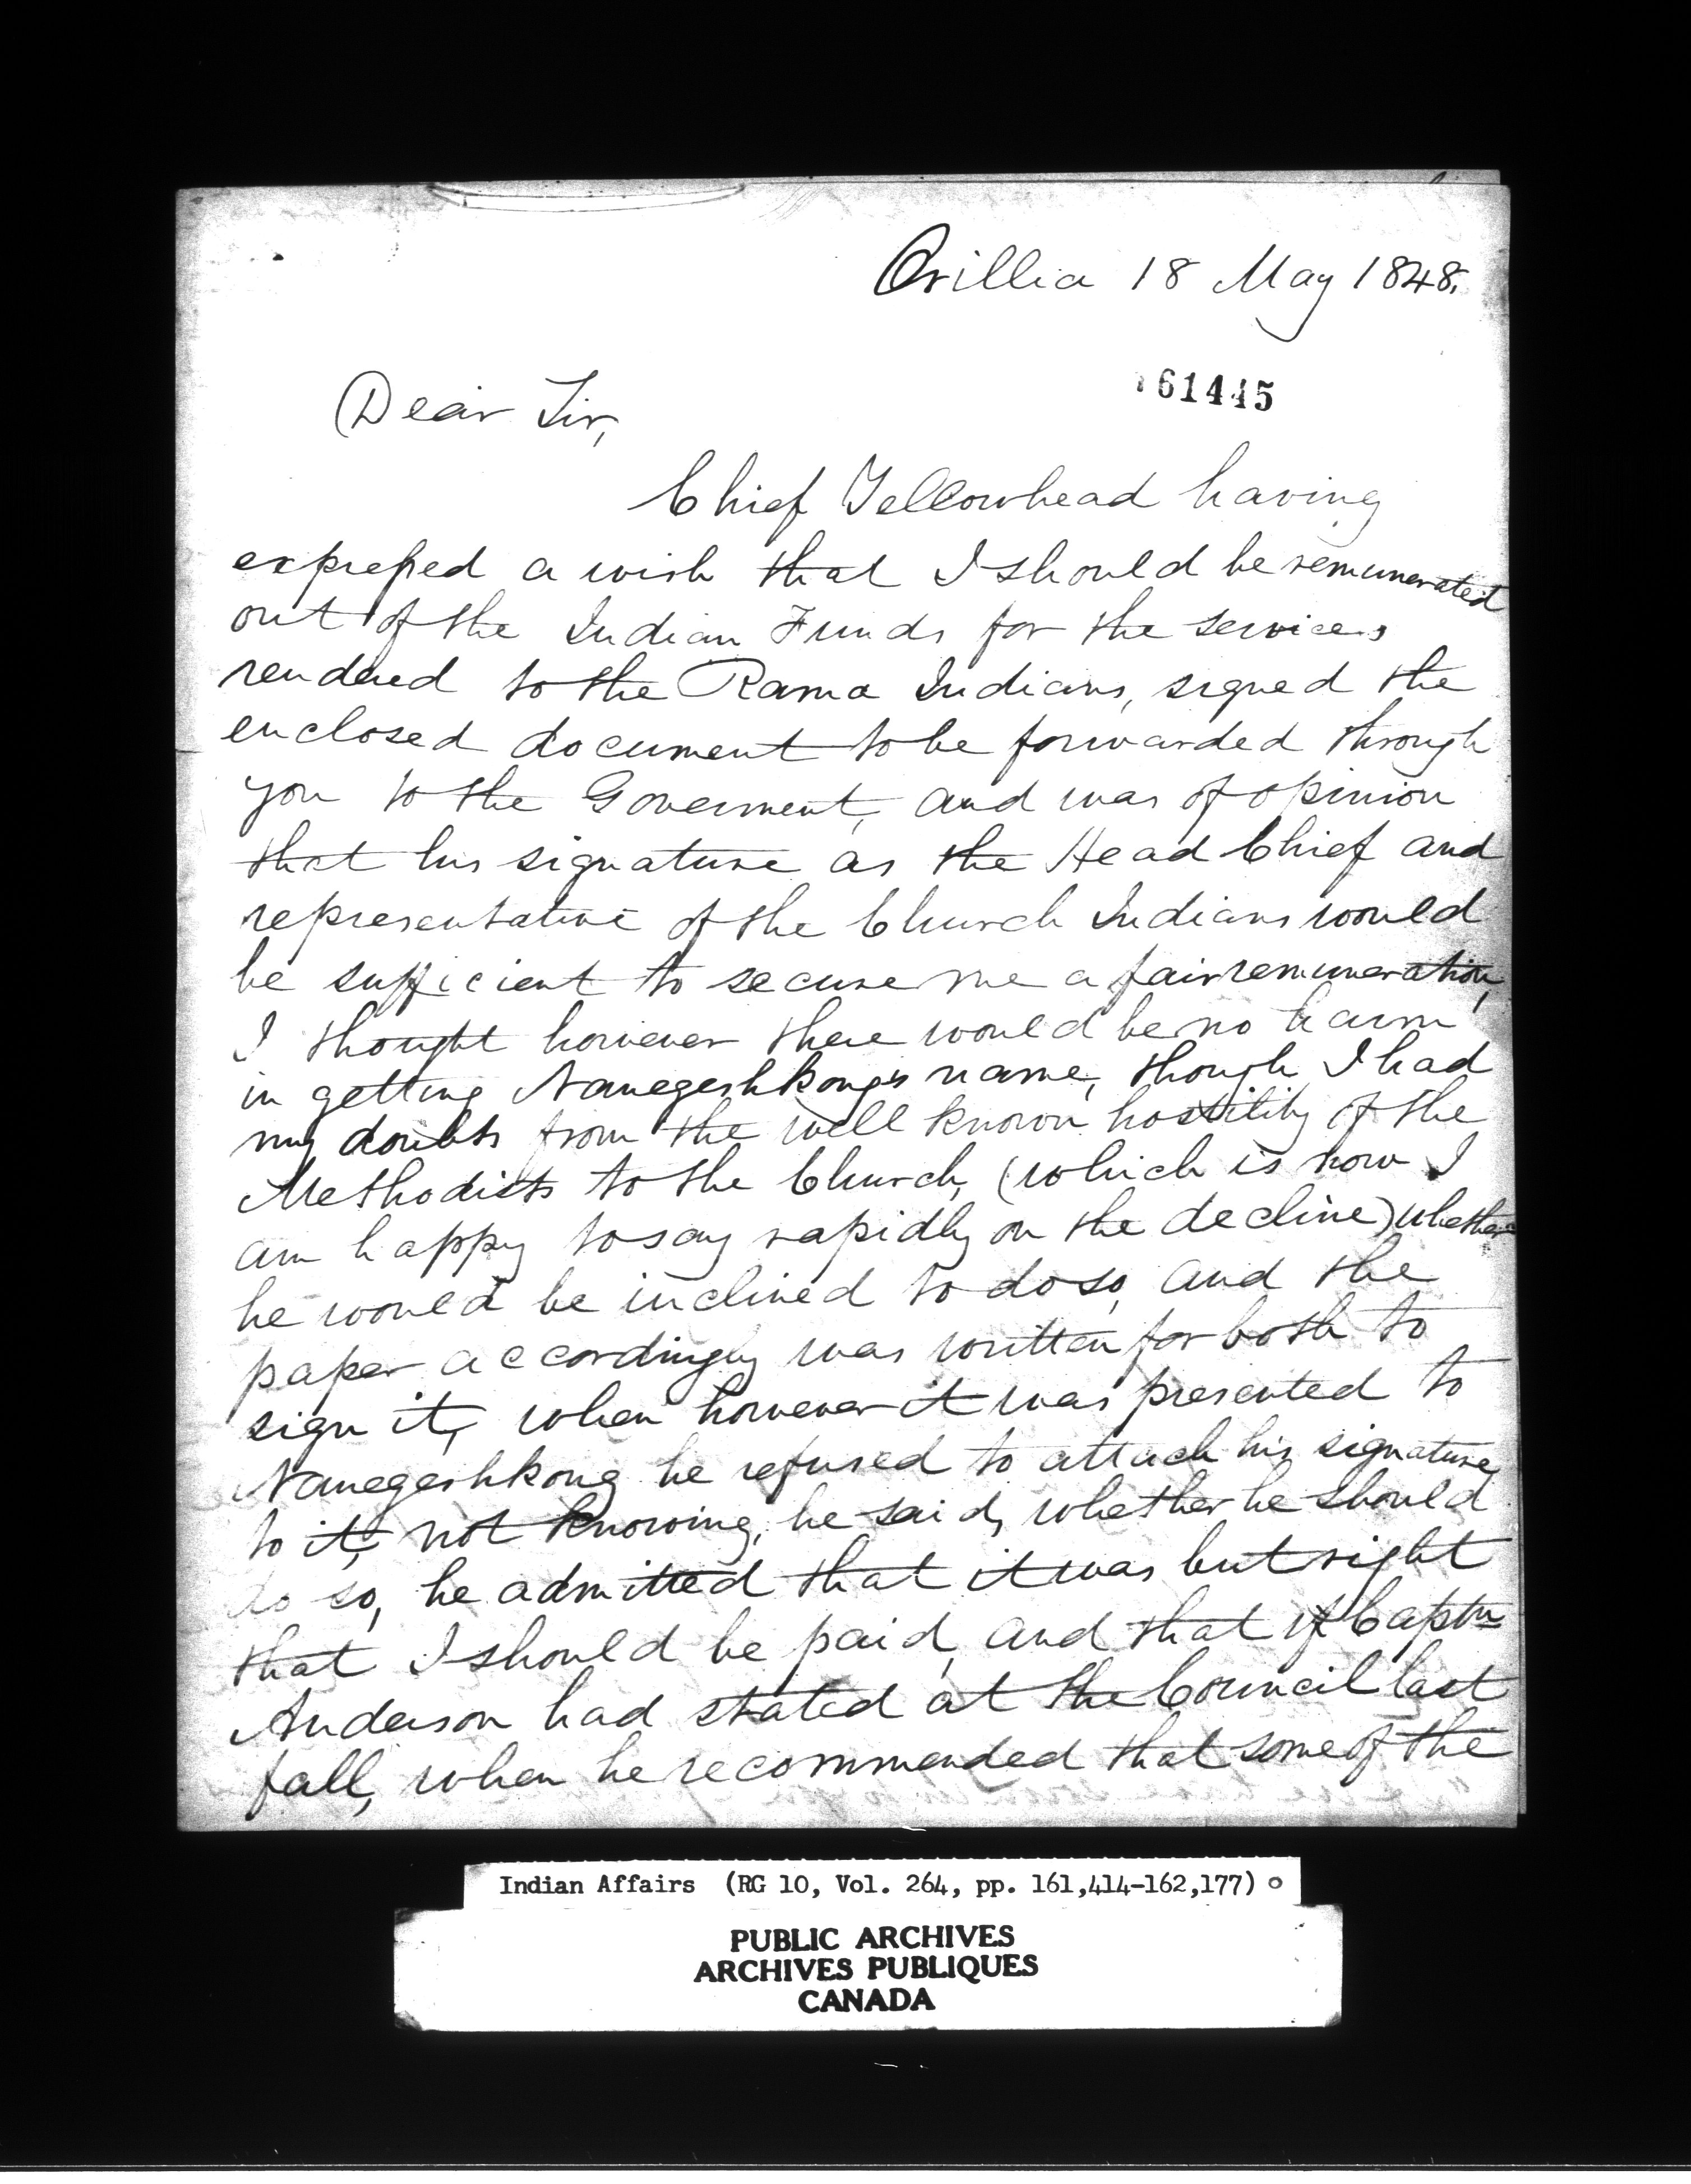 Orillia 18 May 1848.
161445
Dear Sir,
Chief Yellowhead having
expressed a wish that I should be remunerated
out of the Indian Funds for the services
rendered to the Rama Indians, signed the
enclosed document to be forwarded through
you to the Goverment, and was of opinion
that his signature as the Head Chief and
representative of the Church Indians would
be sufficient to secure me a fair remuneration,
I thought however there would be no harm
in getting Nanegeshkong's name, though I had
my doubts from the well known hostility of the
Methodists to the Church, (which is now I
am happy to say rapidly on the decline) whether
he would be inclined to do so, and the
paper accordingly was written for both to
sign it, when however it was presented to
Nanegeshkong he refused to attach his signature
to it, not knowing, he said, whether he should
do so, he admitted that it was but right
that I should be paid, and that if Captn
Anderson had stated at the Council last
fall, when he recommended that some of the
Indian Affairs (RG 10, Vol. 264, pp. 161,414-162,177)
PUBLIC ARCHIVES
ARCHIVES PUBLIQUES
CANADA